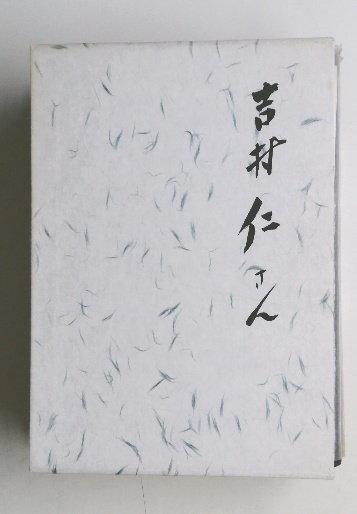 吉村仁さん